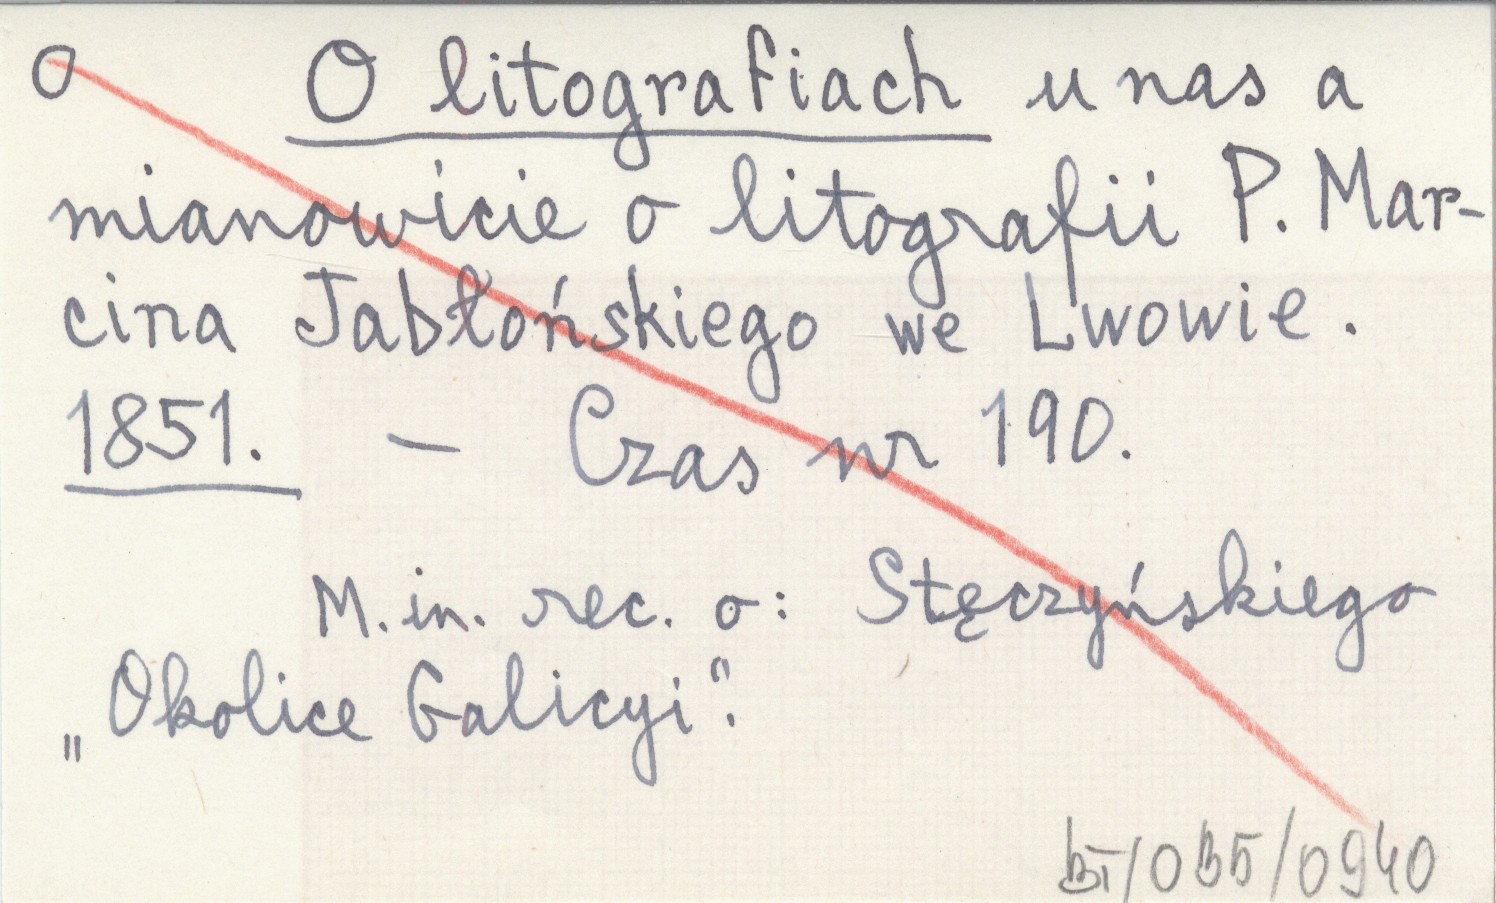 O O litografiach u nas a
mianowicie o litografii P. Mar-
cina Jabłońskiego we Lwowie.
1851. – Czas nr 190.
M. in. rec. o: Stęczyńskiego
„Okolice Galicyi".
/0940